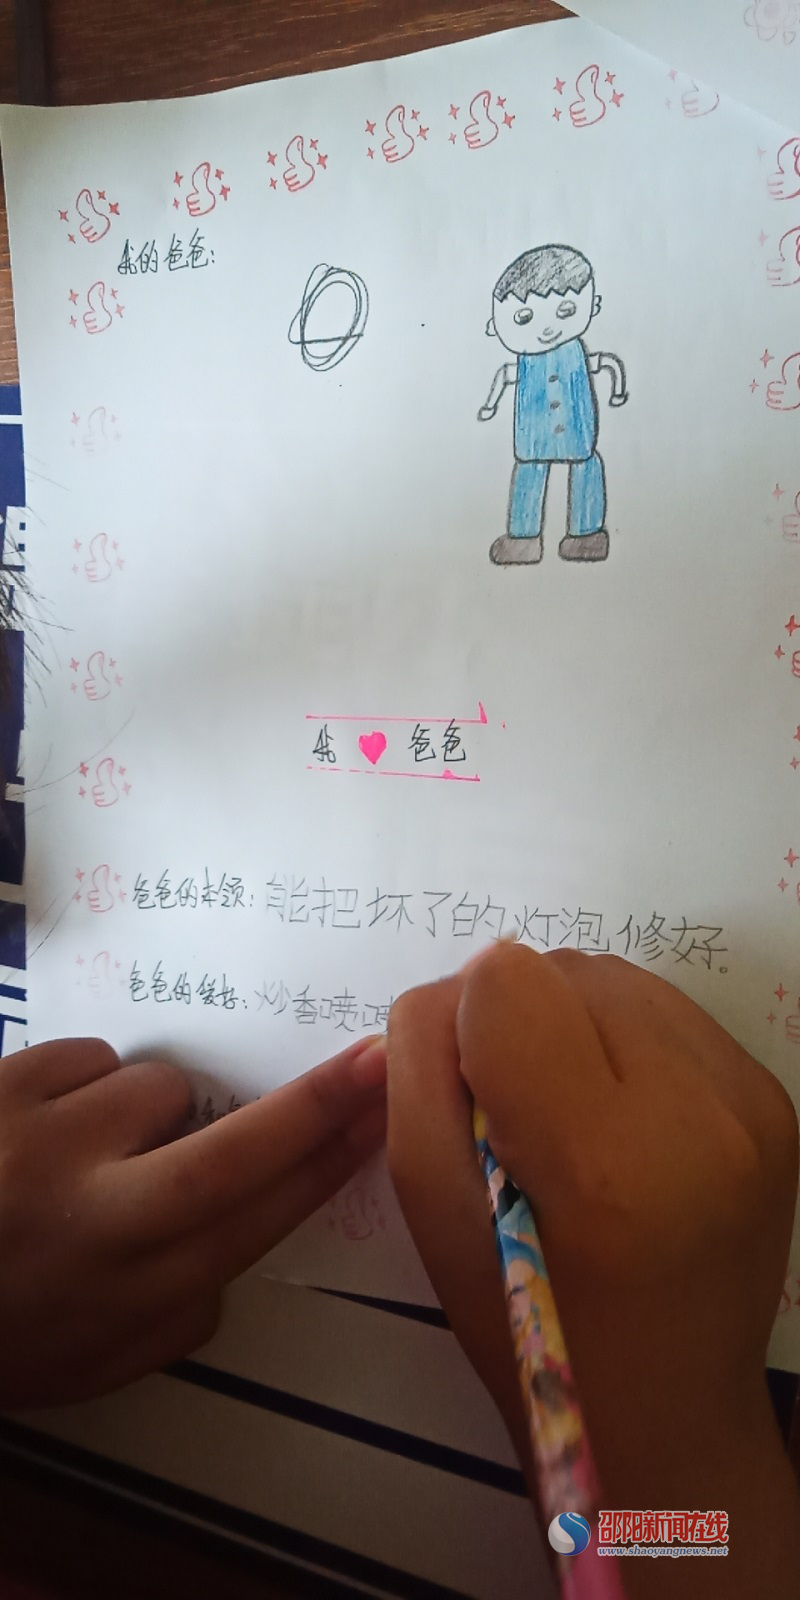 我的爸爸：
我 ♥ 爸爸
爸爸的本领：能把坏了的灯泡修好。
爸爸的爱好：炒香喷喷
邵阳新闻在线
www.shaoyangnews.net